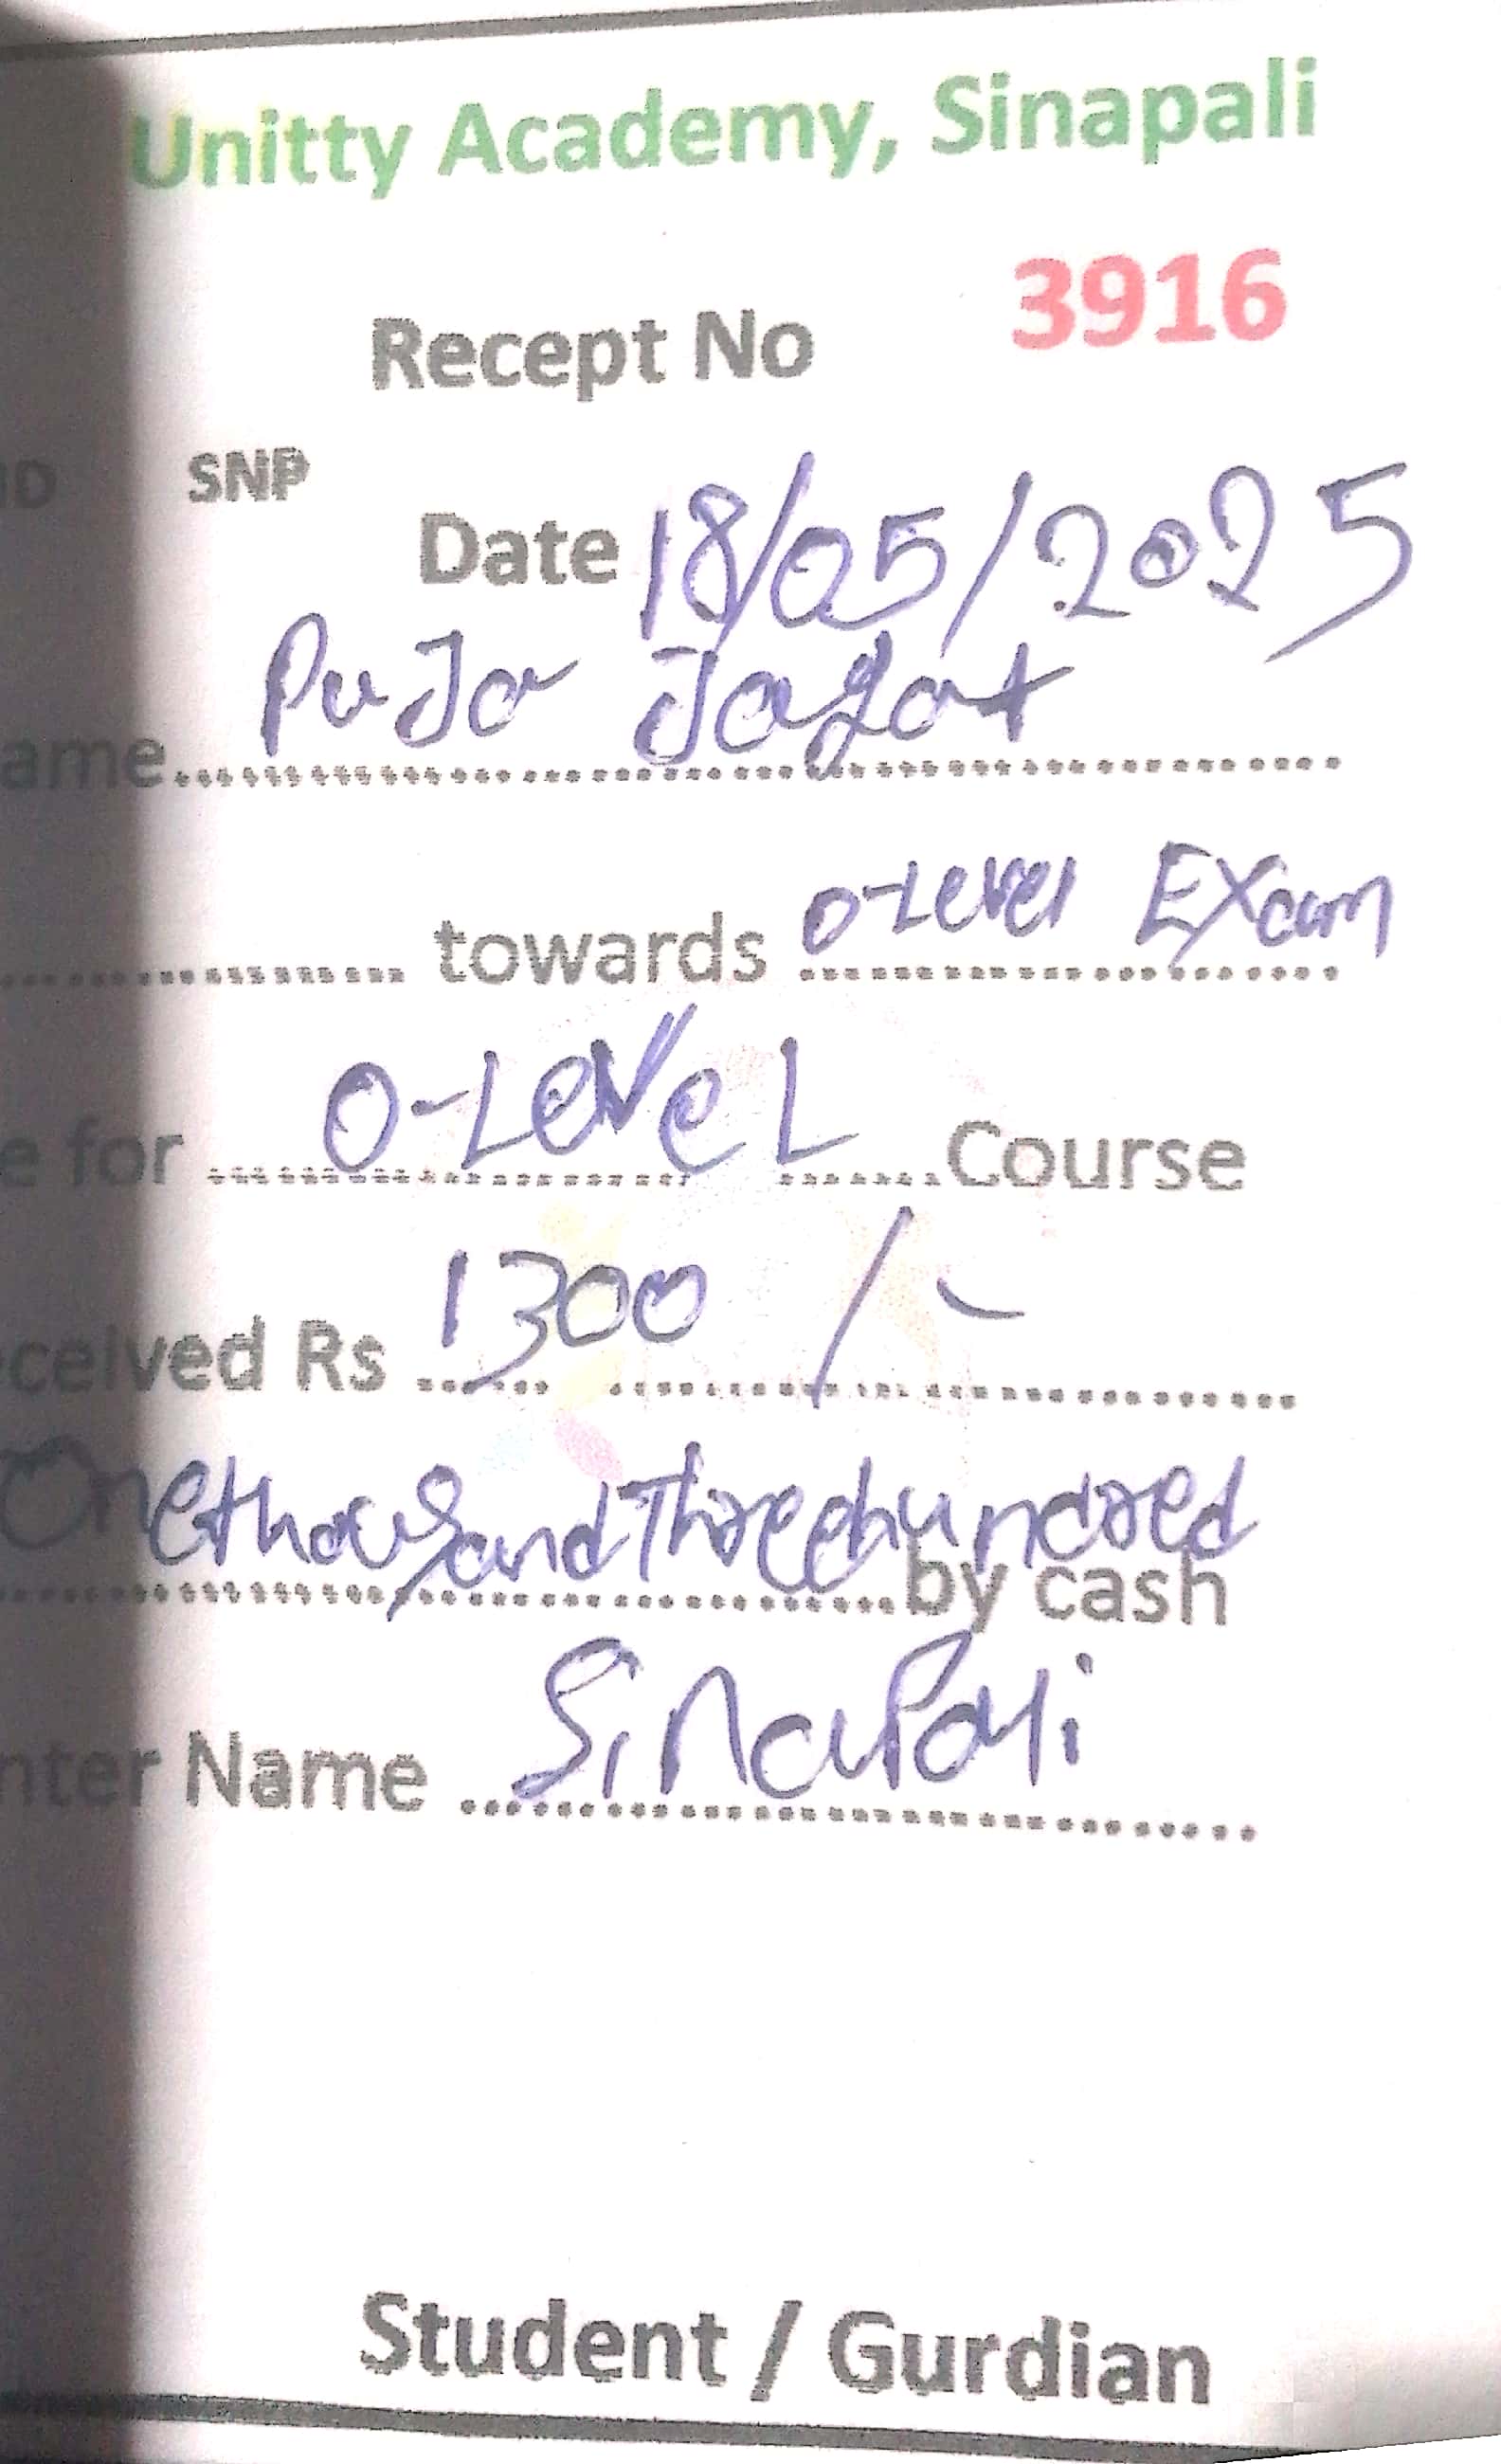 Unitty Academy, Sinapali
Recept No 3916
ID SNP
Date 18/05/2025
ame PuJa Jagat
towards O-Level EXam
e for O-LeVeL Course
ceived Rs 1300 /-
One thousand Three hundred
by cash
nter Name SinaPali
Student / Gurdian